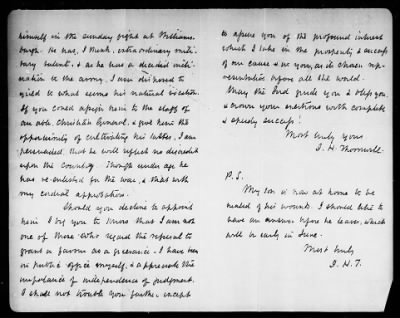 himself in the Sunday fight at Williams-
burgh. He has, I think, extraordinary mili-
tary talent, & as he has a decided incli-
nation to the army, I am disposed to
yield to what seems his natural vocation.
If you could assign him to the staff of
an able, Christian General, & give him the
opportunity of cultivating his tastes, I am
persuaded that he will reflect no discredit
upon the country. Though under age he
has re-enlisted for the war, & that with
my cordial approbation.
Should you decline to appoint
him I beg you to know that I am not
one of those who regard the refusal to
grant a favour as a grievance. I have been
in public office myself, & appreciate the
importance of independence of judgment.
I shall not trouble you further, except
to assure you of the profound interest
which I take in the prosperity & success
of our cause, & in you, as its chosen rep-
resentative before all the world.
May the Lord guide you & bless you,
& crown your exertions with complete
& speedy success!
Most truly yours
J. H. Thornwell.
P.S.
My son is now at home to be
healed of his wound. I should like to
have an answer before he leaves, which
will be early in June.
Most truly
J. H. T.